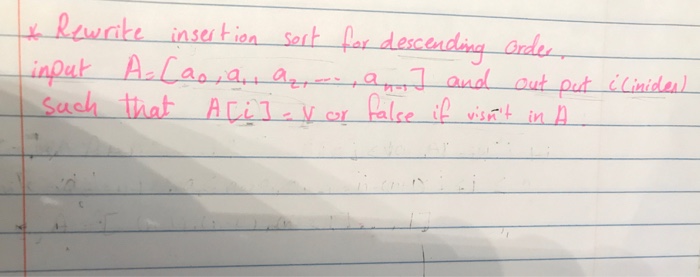 * Rewrite insertion sort for descending order.
input A=[a0, a1, a2, ---, an-1] and out put i(inidex)
such that A[i] = v or false if v isn't in A.